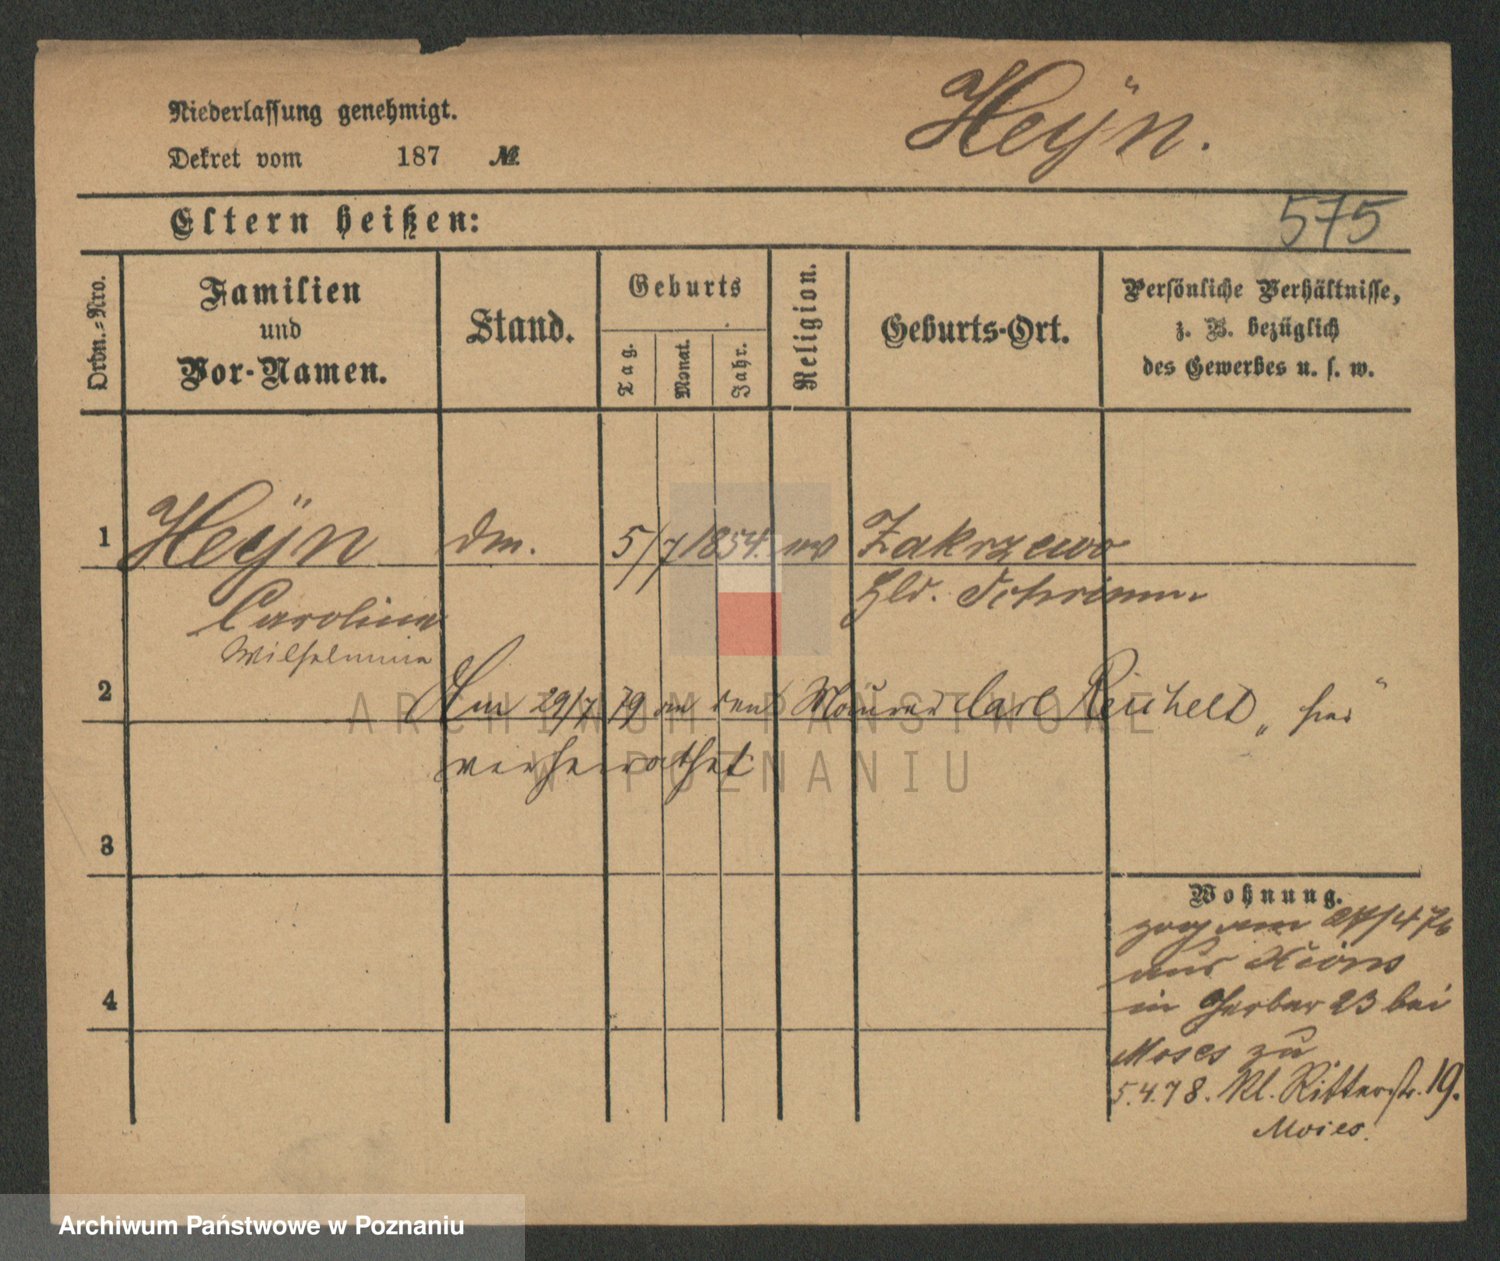 Niederlassung genehmigt.
Dekret vom 187 №
Heÿn.
Eltern heißen:
575
Ordn.=Nro.
Familien
und
Vor-Namen.
Stand.
Geburts
Tag.
Monat.
Jahr.
Religion.
Geburts-Ort.
Persönliche Verhältnisse,
z. B. bezüglich
des Gewerbes u. s. w.
1 Heÿn 5/7 1854. ev Zakrzewo
Carolina Schrimm
Wilhelmine
2 Am 29/7 79 an den Maurer Carl Reichelt hier
verheirathet
3
4
Wohnung.
zog am 27/4 76
aus Xions
in Gerber 23 bei
Moses zu
5.4.78. Kl. Ritterstr. 19.
Moses.
ARCHIWUM PAŃSTWOWE
W POZNANIU
Archiwum Państwowe w Poznaniu